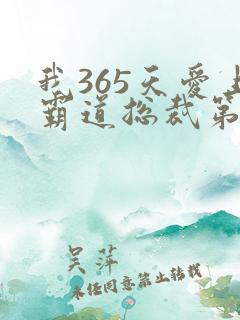 我365天爱上
霸道总裁第
吴萍
未经同意禁止转载